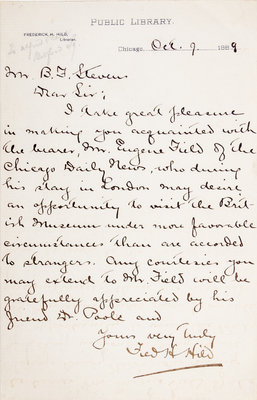 PUBLIC LIBRARY.
FREDERICK H. HILD,
Librarian.
Chicago, Oct. 9. 1889
Mr. B. F. Stevens
Dear Sir;
I take great pleasure
in making you acquainted with
the bearer, Mr. Eugene Field of the
Chicago Daily News, who during
his stay in London may desire
an opportunity to visit the Brit-
ish Museum under more favorable
circumstances than are accorded
to strangers. Any courtesies you
may extend to Mr. Field will be
gratefully appreciated by his
friend Dr. Poole and
Yours very truly
Fred H. Hild